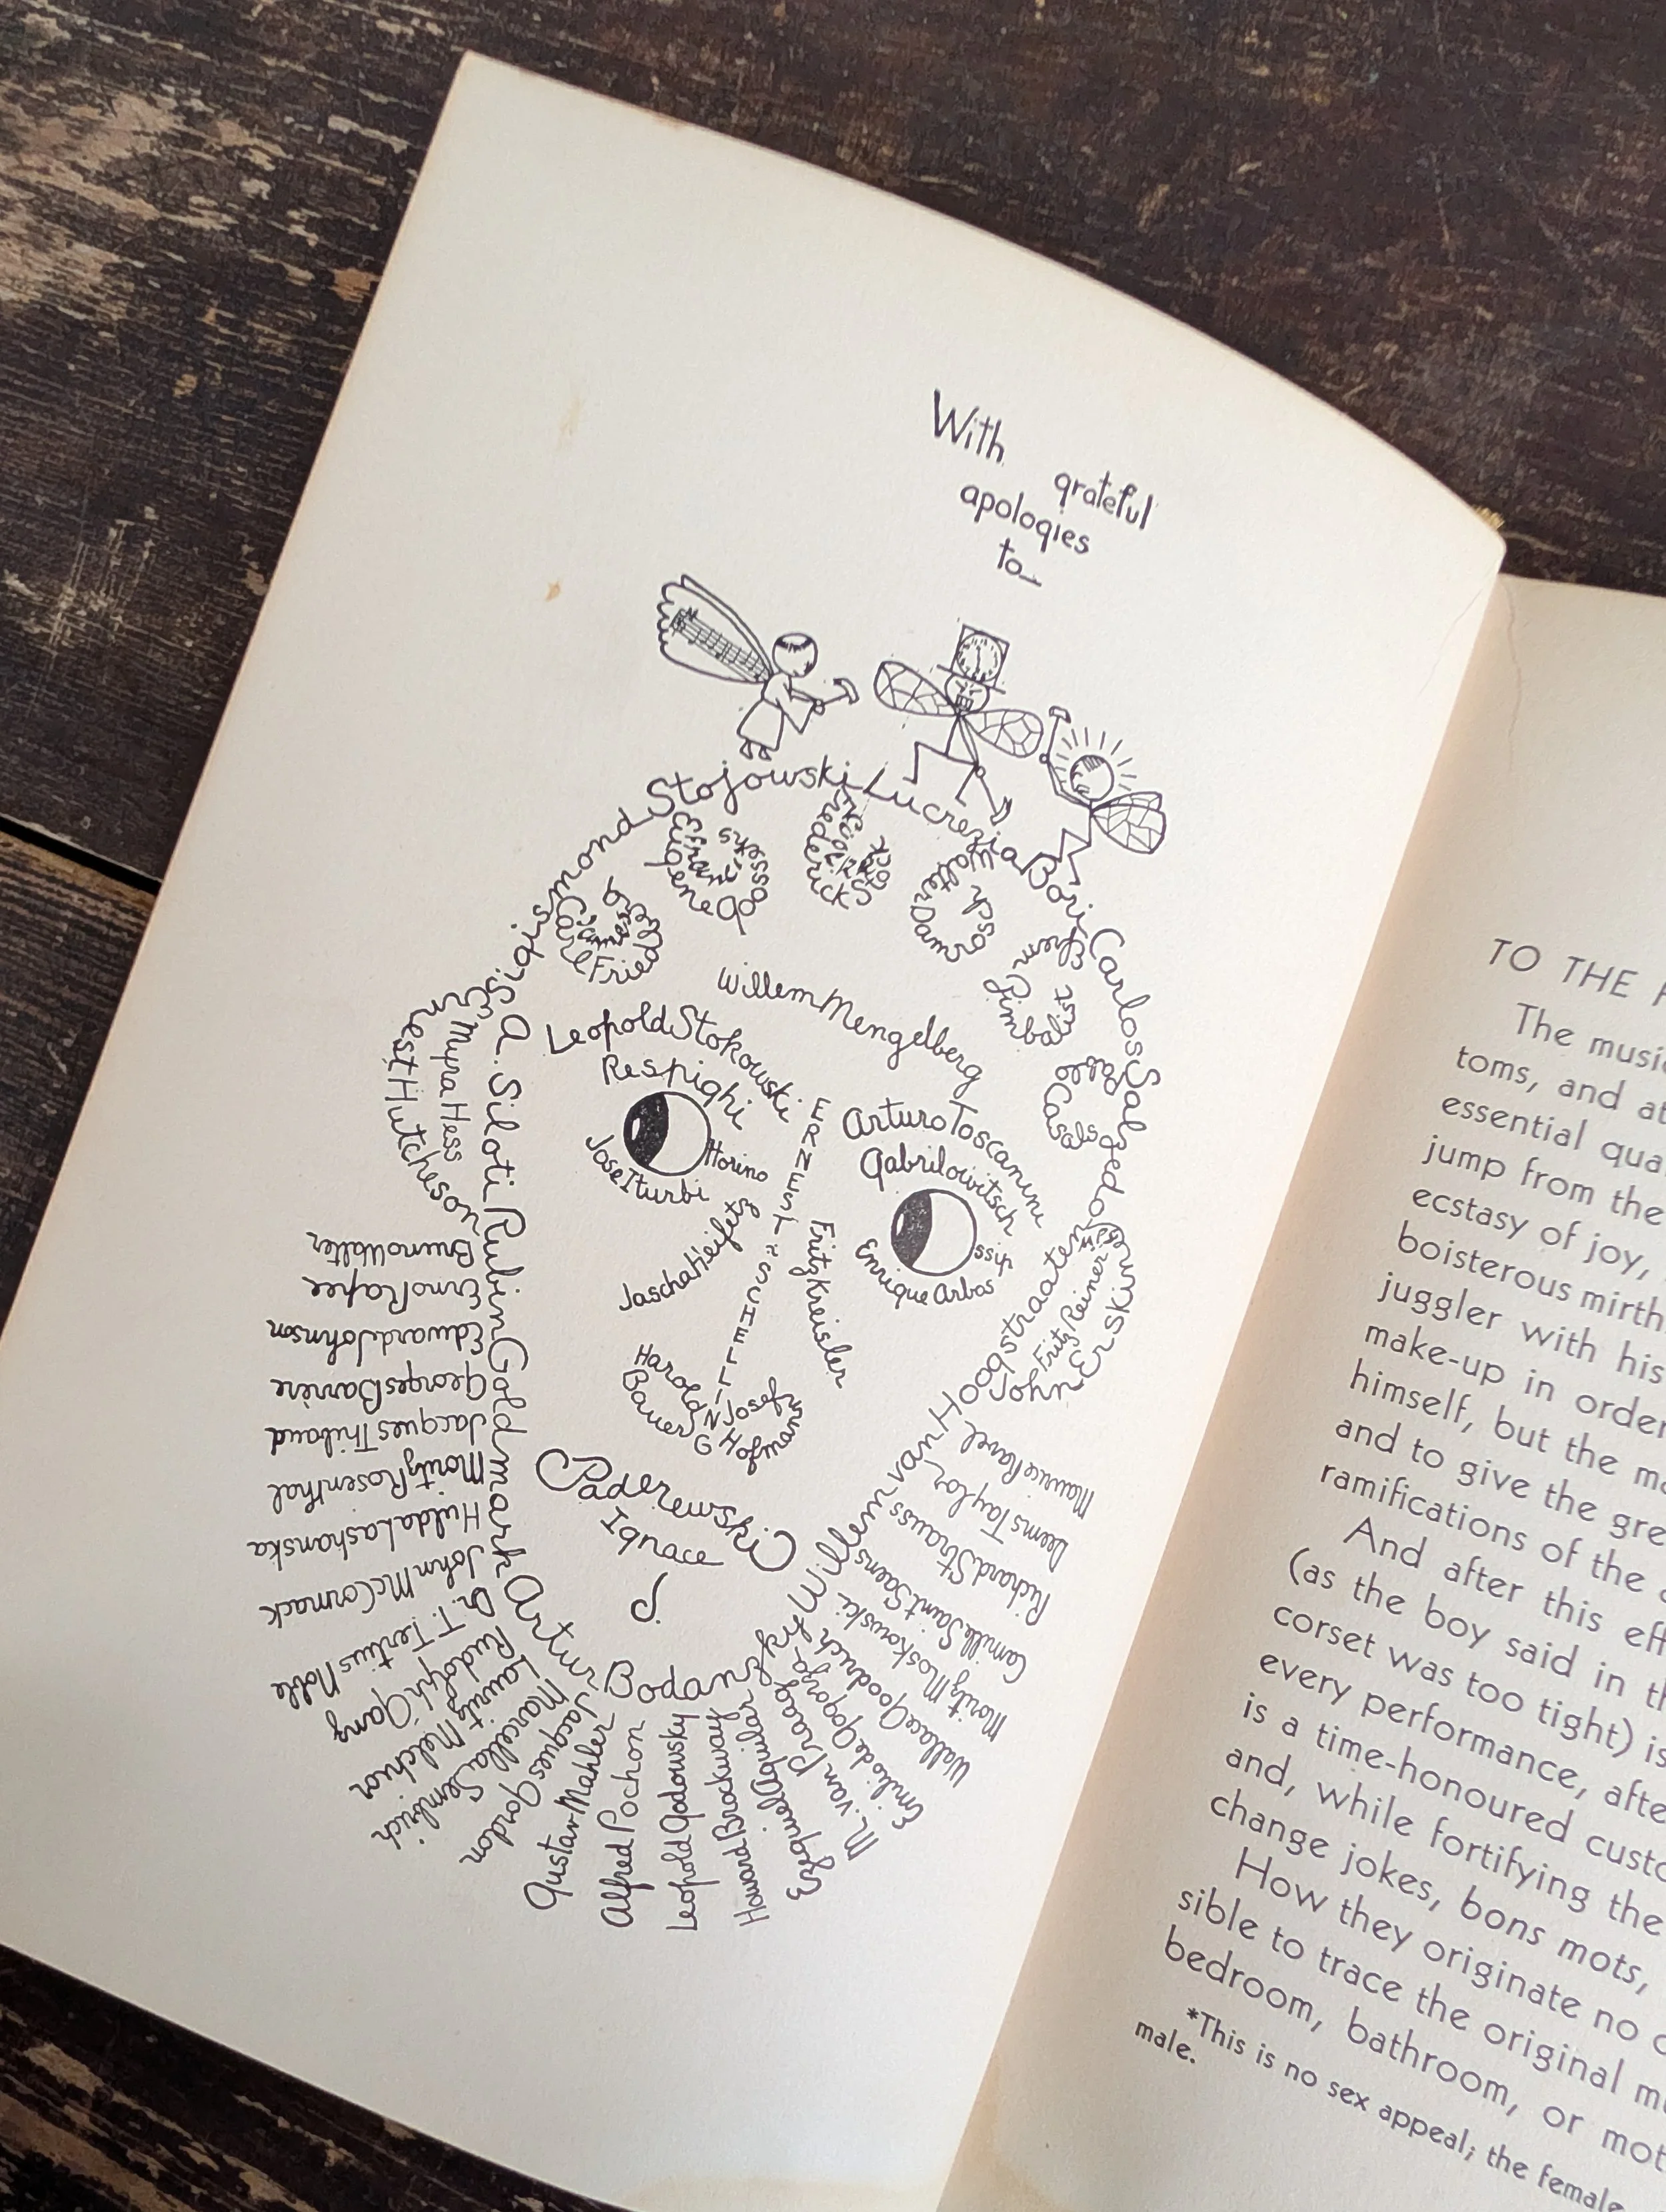 With
grateful
apologies
to_
Sigismond Stojowski
Lucrezia Bori
Carlos Salzedo
Eugene Goossens
Efram
Frederick Stock
Walter Damrosch
Carl Friedberg
Efrem Zimbalist
Pablo Casals
Willem Mengelberg
Leopold Stokowski
Respighi
Jose Iturbi
Horino
Arturo Toscanini
Gabrilowitsch
Enrique Arbos
Ossip
ERNEST SCHELLING
Jascha Heifetz
Fritz Kreisler
Harold Bauer
Josef Hofmann
Paderewski
Ignace
Ernest Hutcheson
Myra Hess
A. Siloti
Rubin Goldmark
Artur Bodanzky
Willem van Hoogstraaten
Fritz Reiner
John Erskine
Bruno Walter
Erno Rapee
Edward Johnson
Georges Barrère
Jacques Thibaud
Moritz Rosenthal
Hulda Lashanska
John McCormack
Dr. T. Tertius Noble
Rudolph Ganz
Lauritz Melchior
Marcella Sembrich
Jacques Gordon
Gustav Mahler
Alfred Pochon
Leopold Godowsky
Howard Brockway
M. van Praag
Emilio de Gogorza
Wallace Goodrich
Moritz Moskowski
Camille Saint Saens
Richard Strauss
Deems Taylor
Maurice Ravel
TO THE
The music
toms, and at
essential qua
jump from the
ecstasy of joy,
boisterous mirth
juggler with his
make-up in order
himself, but the m
and to give the gre
ramifications of the
And after this eff
(as the boy said in th
corset was too tight) is
every performance, afte
is a time-honoured custo
and, while fortifying the
change jokes, bons mots,
How they originate no
sible to trace the original m
bedroom, bathroom, or mot
*This is no sex appeal; the female
male.